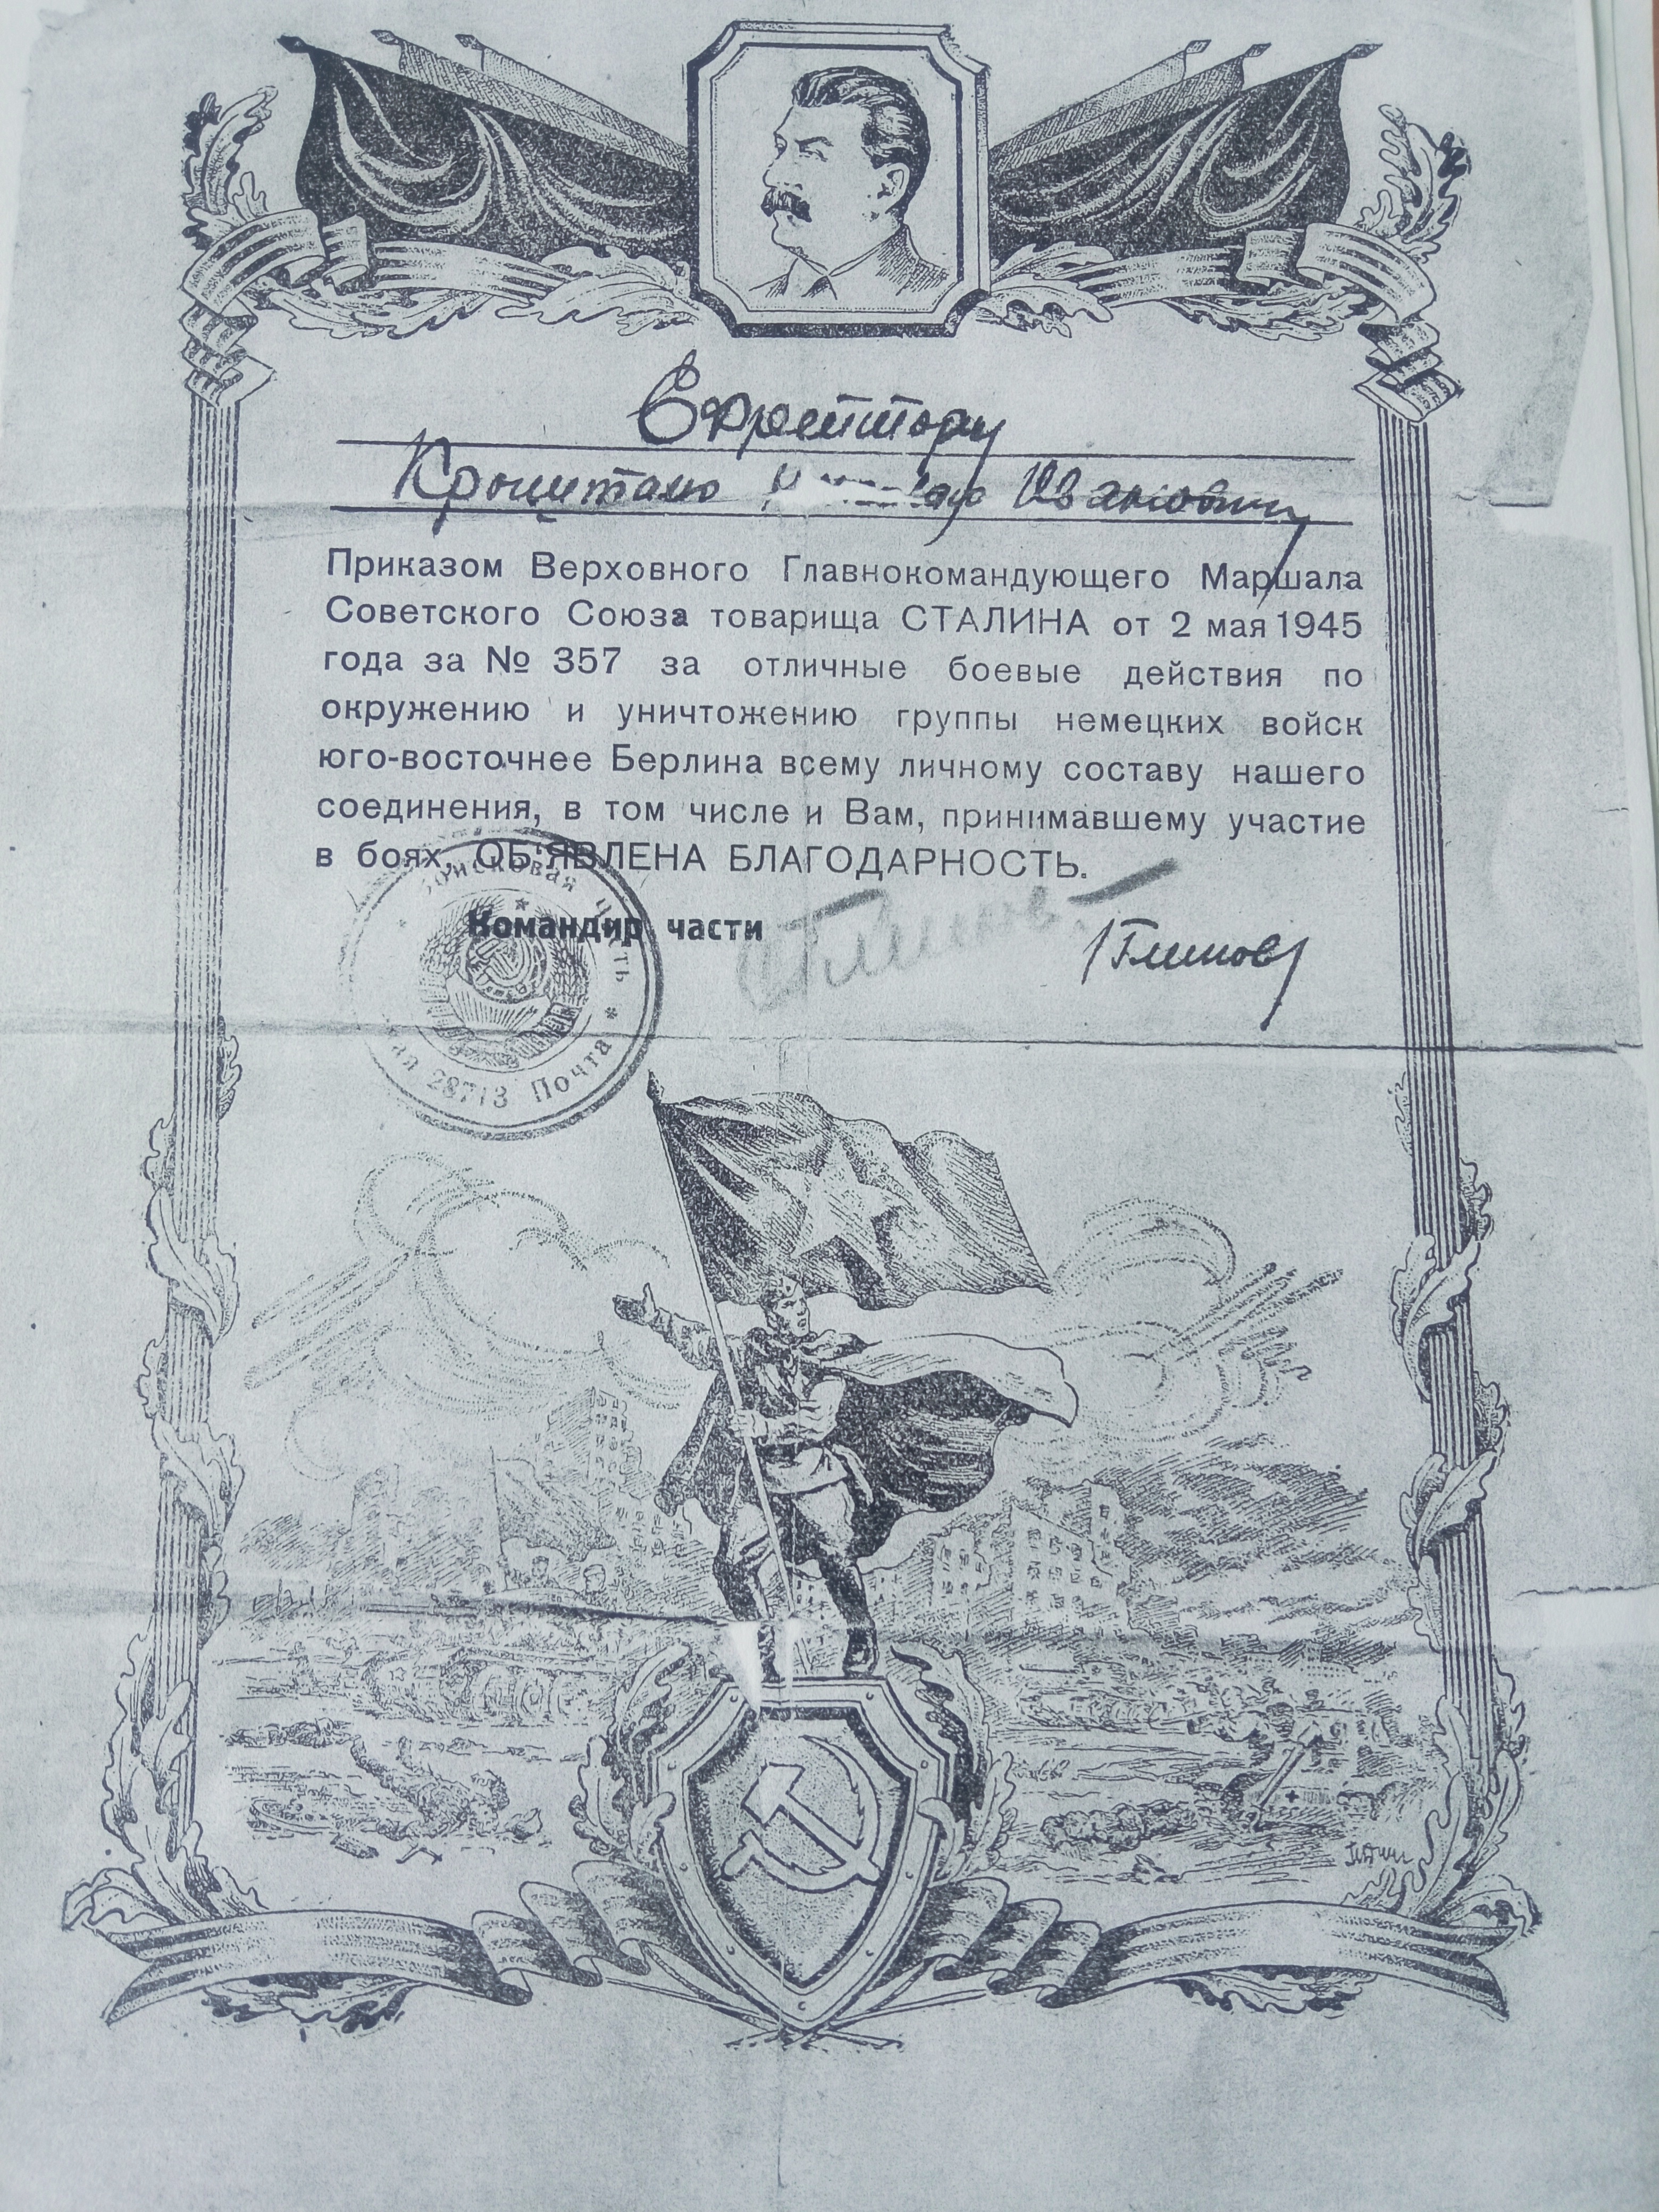 Ефрейтору
Кронштало Ивановичу
Приказом Верховного Главнокомандующего Маршала
Советского Союза товарища СТАЛИНА от 2 мая 1945
года за № 357 за отличные боевые действия по
окружению и уничтожению группы немецких войск
юго-восточнее Берлина всему личному составу нашего
соединения, в том числе и Вам, принимавшему участие
в боях, ОБ'ЯВЛЕНА БЛАГОДАРНОСТЬ.
Командир части
/Глинов/
Войсковая часть * 28713 Почта *